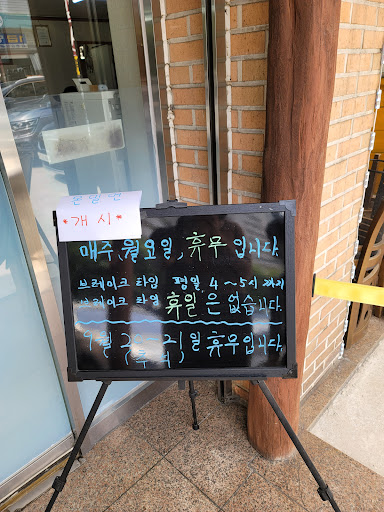 온명면
*개시*
매주, 월요일, 휴무 입니다.
브레이크 타임 평일 4~5시 까지
브레이크 타임 휴일은 없습니다.
9월 2 21일 휴무입니다.